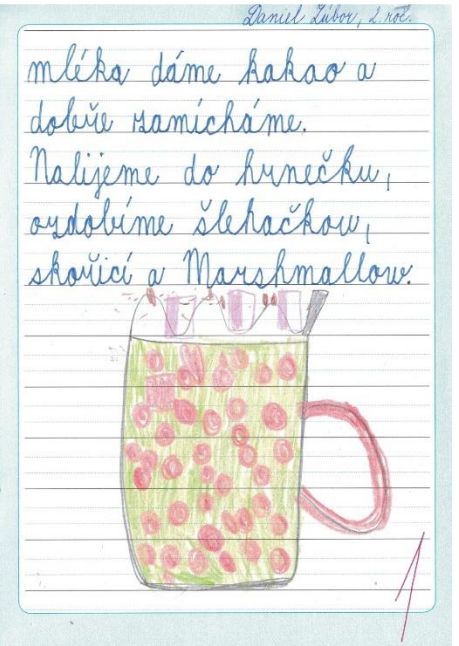 Daniel Zúbor, 2. roč.
mléka dáme kakao a
dobře zamícháme.
Nalijeme do hrnečku,
ozdobíme šlehačkou,
skořicí a Marshmallow.
1